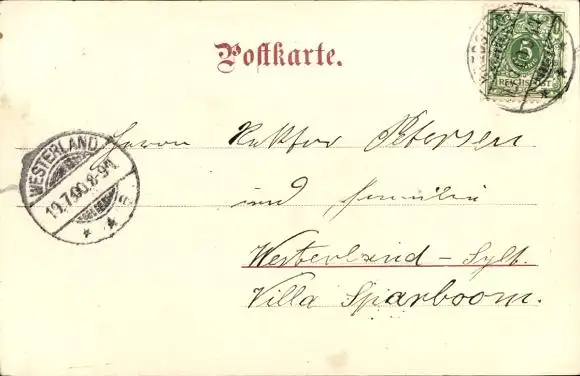 Postkarte.
5
REICHSPOST
WESTERLAND
19.7.90.8-9V.
* * a
Herrn Rektor Petersen
und Familie
Westerland - Sylt.
Villa Sparboom.